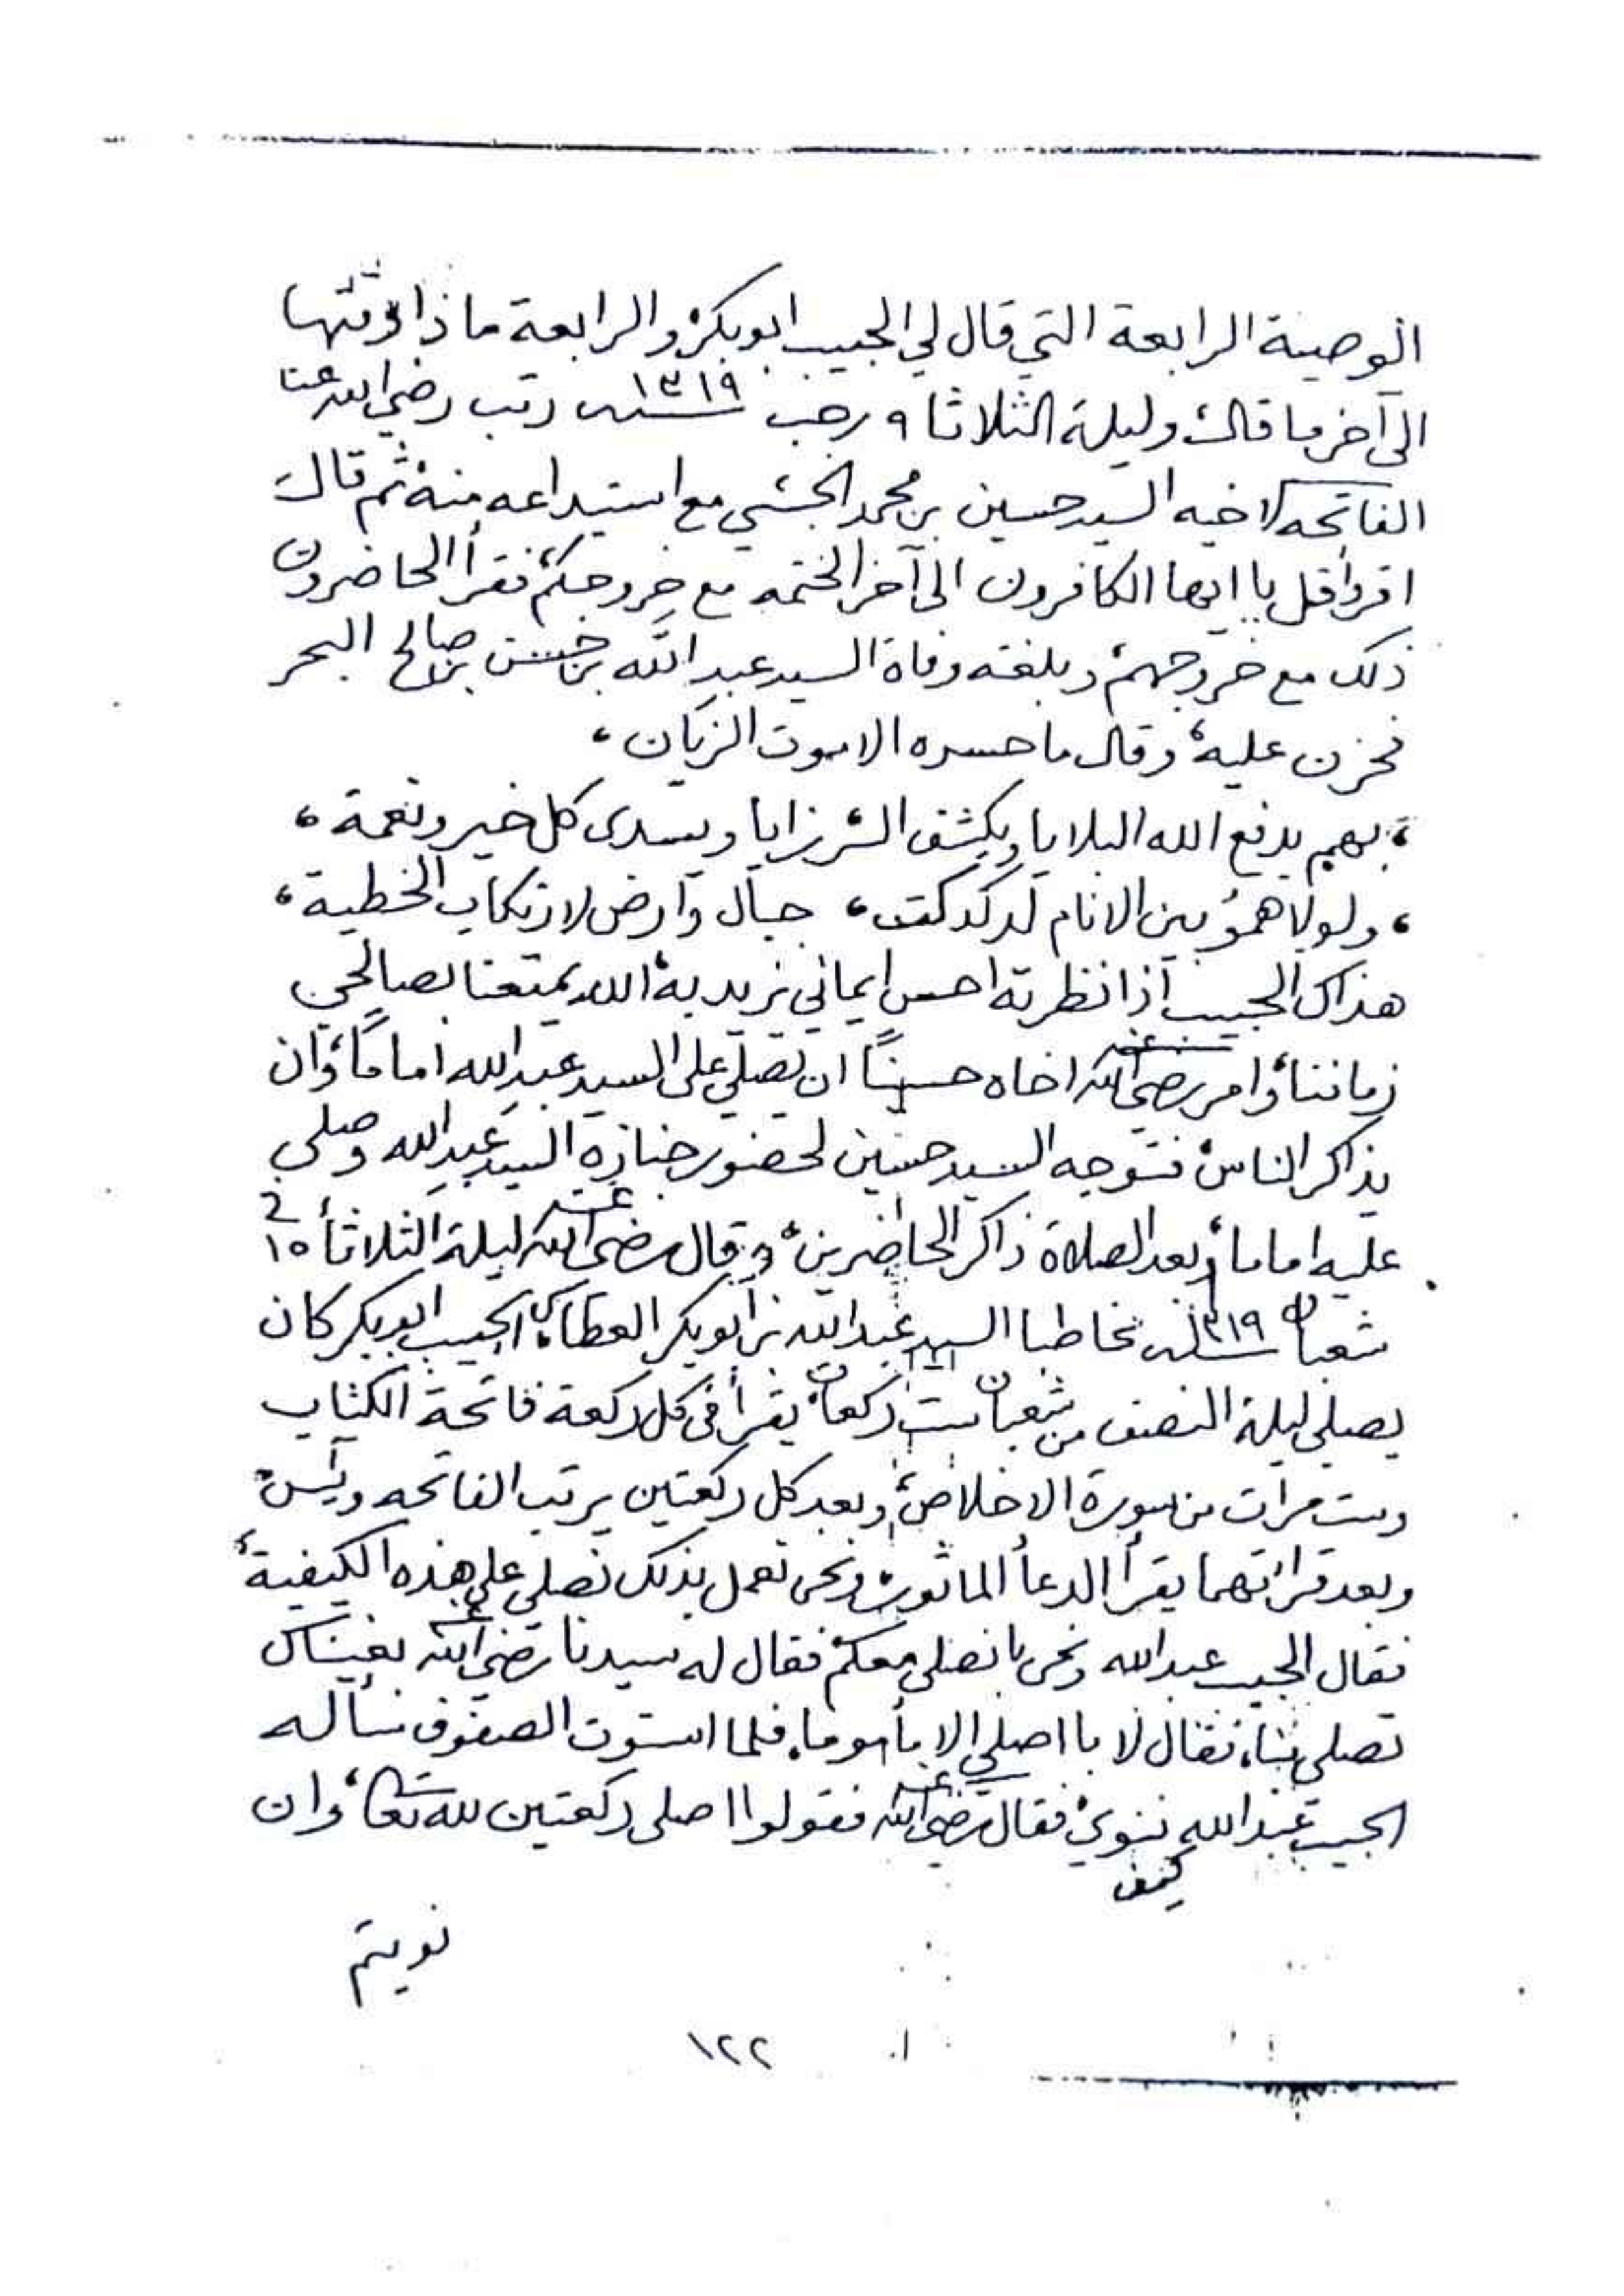 الوصية الرابعة التي قال لي الحبيب ابوبكر والرابعة ماذا وقتها
الى آخر ما قال، وليلة الثلاثا ٩ رجب سنة ١٣١٩ رتب رضي الله عنا
الفاتحه لاخيه السيد حسين بن محمد الحبشي مع استيداعه منه ثم قال
اقرؤا قل يا ايها الكافرون الى آخر الختمه مع خروجكم فقرأ الحاضرون
ذلك مع خروجهم، وبلغته وفاة السيد عبد الله بن حسن بن صالح البحر
فحزن عليه، وقال ما حسره الا موت الزيان،
، بهم يدفع الله البلايا ويكشف الرزايا ويسدى كل خير ونعمة،
، ولولاهمو بين الانام لدكدكت، جبال وارض لارتكاب الخطية،
هذاك الحبيب اذا نظرته احس ايماني يزيد به، الله يمتعنا بصالحي
زماننا، وامر رضي الله عنه اخاه حسيناً ان يصلي على السيد عبد الله اماماً، وان
يذاكر الناس، فتوجه السيد حسين لحضور جنازة السيد عبد الله وصلى
عليه اماما، وبعد الصلاة ذاكر الحاضرين، وقال رضي الله عنه ليلة الثلاثا ١٥ في
شعبان سنة ١٣١٩ مخاطبا السيد عبد الله بن ابوبكر العطاس، الحبيب ابوبكر كان
يصلي ليلة النصف من شعبان ست ركعات، يقرأ في كل ركعة فاتحة الكتاب
وست مرات من سورة الاخلاص، وبعد كل ركعتين يرتب الفاتحه ويس
وبعد قرائتهما يقرأ الدعأ المأثور، ونحن نعمل بذلك نصلي على هذه الكيفية
فقال الحبيب عبد الله ونحن با نصلي معكم، فقال له سيدنا رضي الله عنه بغيناك
تصلي بنا، فقال لا با اصلي الا مأموما، فلما استوت الصفوف سأله
الحبيب عبد الله كيف ننوي، فقال رضي الله عنه فقولوا اصلي ركعتين لله تعالى، وان
نويتم
١٢٢